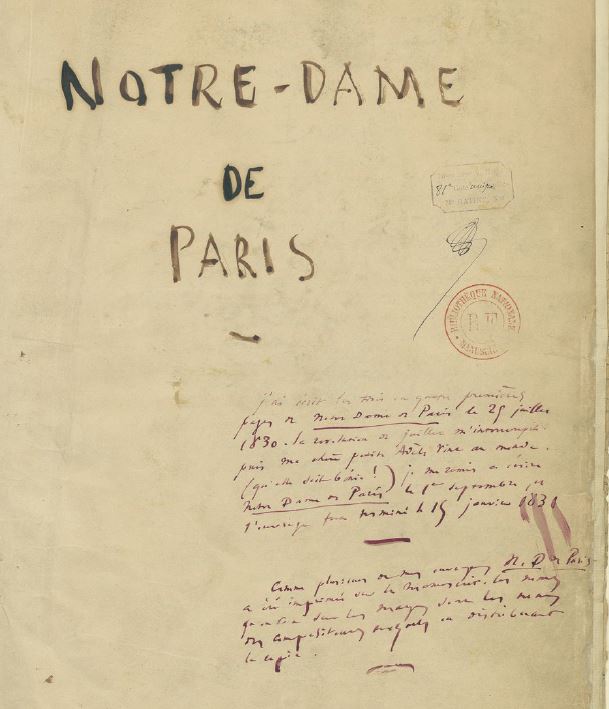 NOTRE-DAME
DE
PARIS
81e
BIBLIOTHÈQUE NATIONALE
R F
MANUSC
j'ai écrit les trois ou quatre premières
pages de Notre Dame de Paris le 25 juillet
1830. la révolution de juillet m'interrompit.
puis ma chère petite Adèle vint au monde.
(qu'elle soit bénie!) je me remis à écrire
Notre Dame de Paris le 1er septembre, et
l'ouvrage fut terminé le 15 janvier 1831
Comme plusieurs de mes ouvrages N.D de Paris
a été imprimé sur le manuscrit. les noms
qu'on voit dans les marges sont les noms
des compositeurs auxquels on distribuait
la copie.